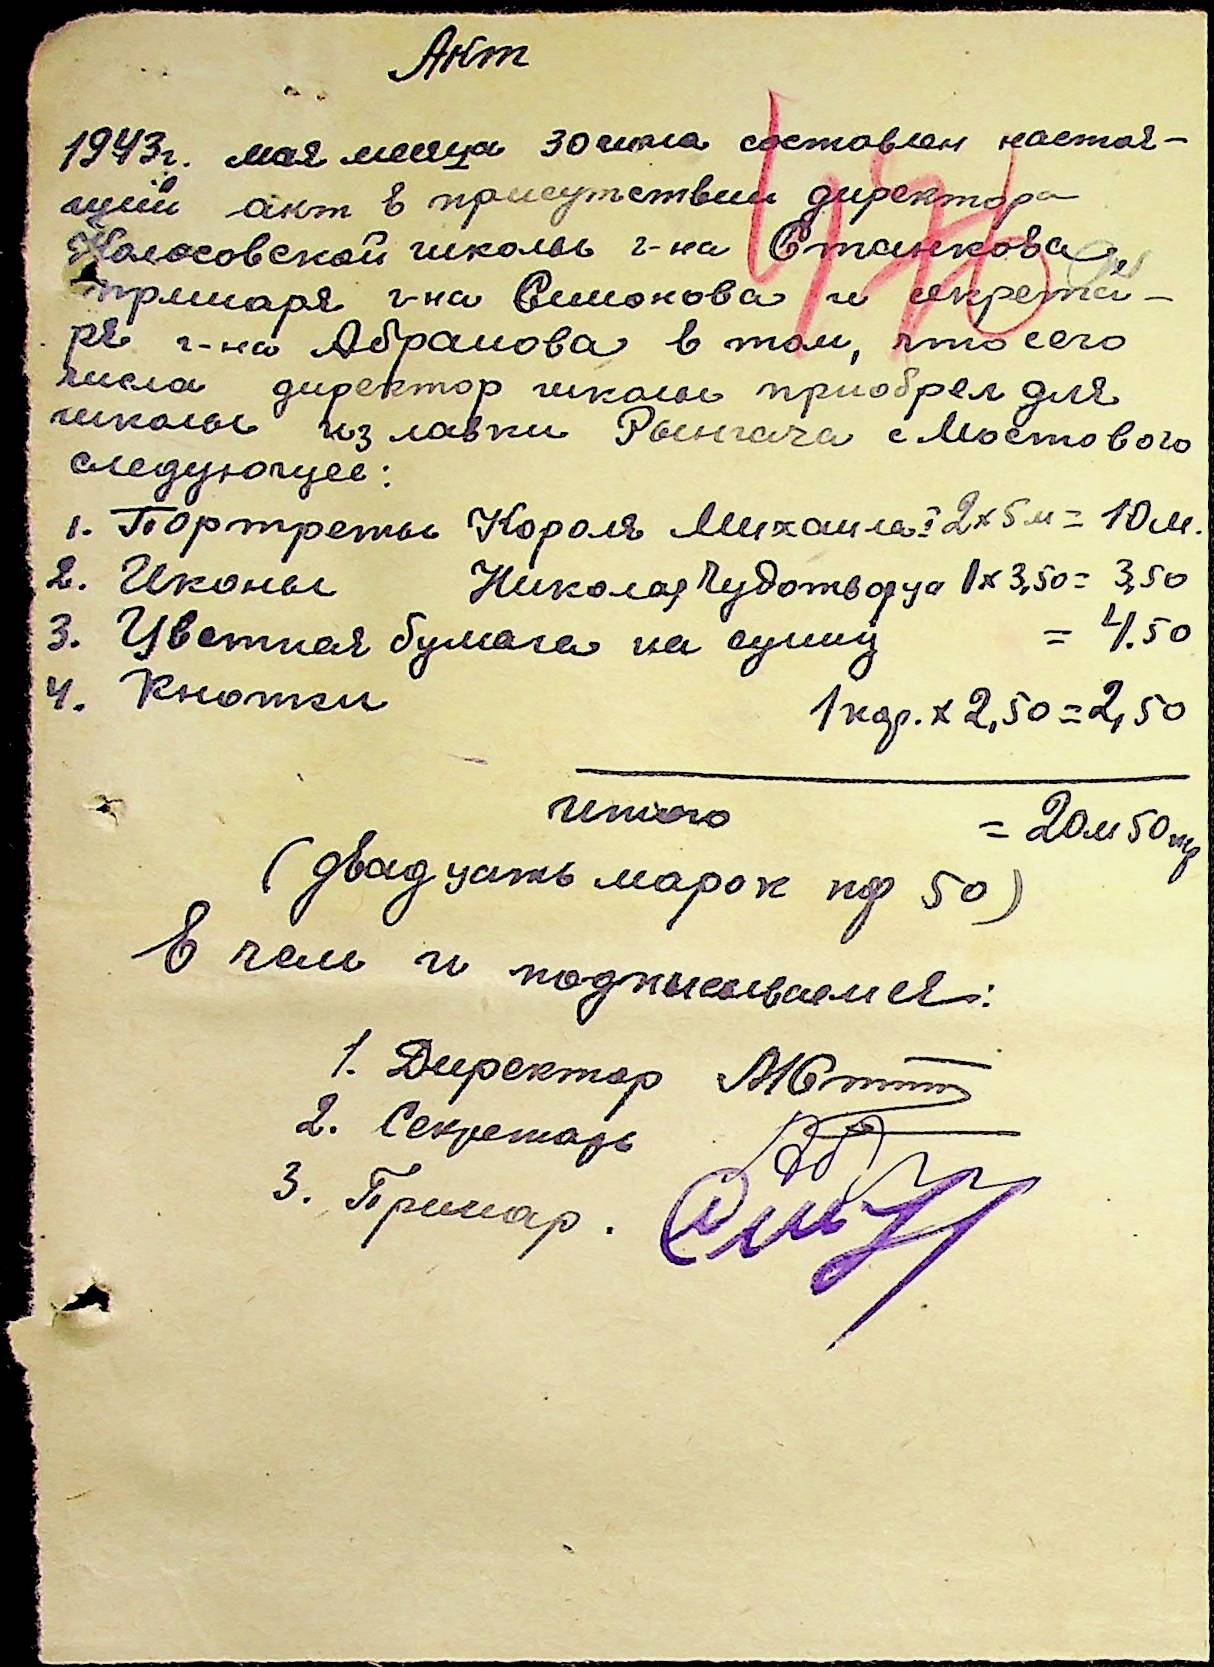 Акт
1943г. мая месяца 30 числа составлен настоя-
щий акт в присутствии директора
Колосовской школы г-на Станкова,
примаря г-на Симонова и секрета-
ря г-на Абрамова в том, что сего
числа директор школы приобрел для
школы из лавки Рынгача с Мостового
следующее:
1. Портреты Короля Михаила: 2х5м = 10м.
2. Иконы Николая Чудотворца 1х3,50 = 3,50
3. Цветная бумага на сумму = 4.50
4. Кнопки 1 кор. х 2,50 = 2,50
итого = 20м 50пф
(двадцать марок пф 50)
В чем и подписываемся:
1. Директор
2. Секретарь
3. Примар.